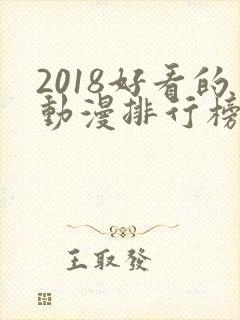 2018好看的
動漫排行榜
王取發